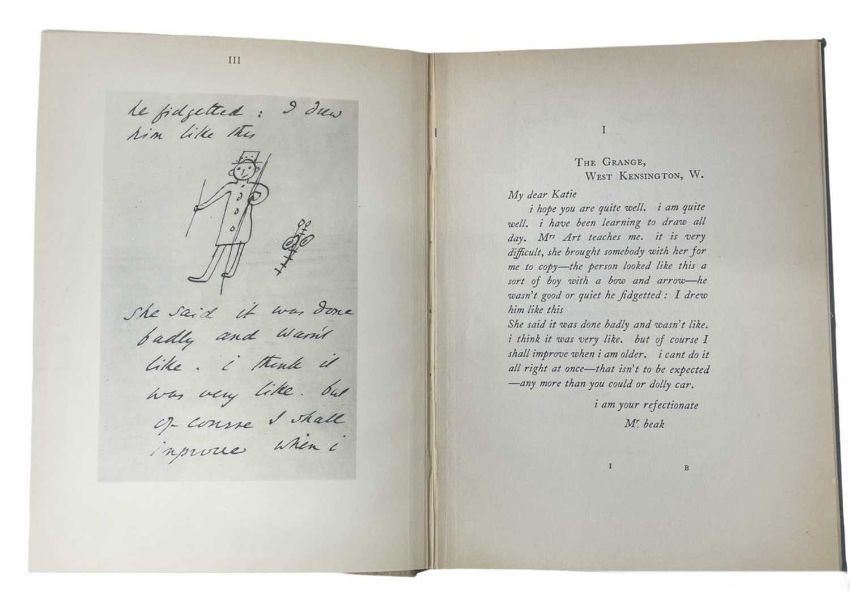 III
he fidgetted : I drew
him like this
she said it was done
badly and wasn't
like. i think it
was very like. but
of course I shall
improve when i
I
The Grange,
West Kensington, W.
My dear Katie
i hope you are quite well. i am quite
well. i have been learning to draw all
day. Mrs Art teaches me. it is very
difficult, she brought somebody with her for
me to copy—the person looked like this a
sort of boy with a bow and arrow—he
wasn't good or quiet he fidgetted : I drew
him like this
She said it was done badly and wasn't like.
i think it was very like. but of course I
shall improve when i am older. i cant do it
all right at once—that isn't to be expected
—any more than you could or dolly car.
i am your refectionate
Mr. beak
I B